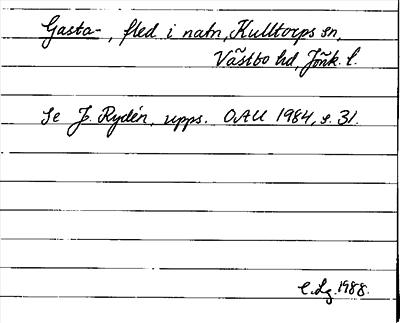 Gasta-, fled i natn, Kulltorps sn,
Västbo hd, Jönk. l.
Se J. Rydén, upps. OAU 1984, s. 31.
C.Lg. 1988.